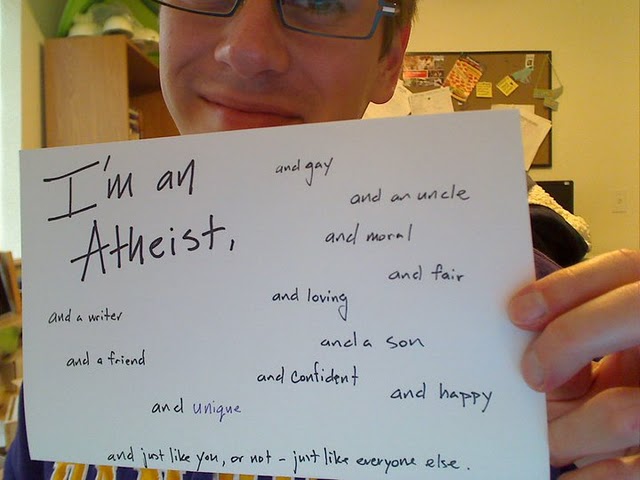 I'm an
Atheist,
and gay
and an uncle
and moral
and fair
and loving
and a writer
and a son
and a friend
and confident
and happy
and unique
and just like you, or not - just like everyone else.